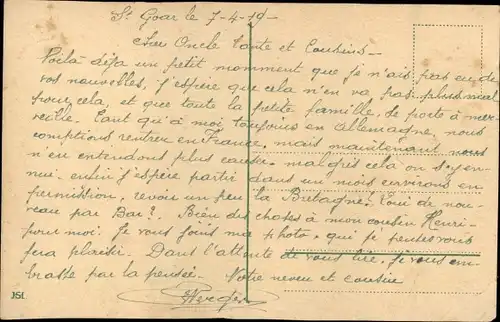 St Goar le 7-4-19-
Cher Oncle Tante et Cousins -
Voilà déja un petit momment que je n'ais pas eu de
vos nouvelles, j'éspère que cela n'en va pas plus mal
pour cela, et que toute la petite famille, se porte à mer-
veille. Tant qu'à moi toujours en Allemagne, nous
comptions rentrer en France, mais maintenant nous
n'en entendons plus causer. malgrés cela on s'y en-
nui. enfin j'éspère partir dans un mois environs en
permission, revoir un peu la Bretagne. Quoi de nou-
veau par Bar?. Bien des choses à mon cousin Henri-
pour moi. Je vous joins ma photo, qui je penses vous
fera plaisir. Dans l'attente de vous lire, je vous em-
brasse par la pensée. Votre neveu et cousin
JSL